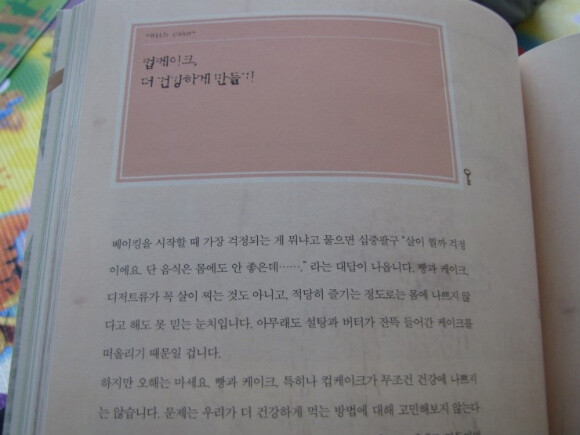 컵케이크,
더 건강하게 만들기!
베이킹을 시작할 때 가장 걱정되는 게 뭐냐고 물으면 십중팔구 "살이 찔까 걱정
이에요. 단 음식은 몸에도 안 좋은데……." 라는 대답이 나옵니다. 빵과 케이크,
디저트류가 꼭 살이 찌는 것도 아니고, 적당히 즐기는 정도로는 몸에 나쁘지 않
다고 해도 못 믿는 눈치입니다. 아무래도 설탕과 버터가 잔뜩 들어간 케이크를
떠올리기 때문일 겁니다.
하지만 오해는 마세요. 빵과 케이크, 특히나 컵케이크가 무조건 건강에 나쁘지
는 않습니다. 문제는 우리가 더 건강하게 먹는 방법에 대해 고민해보지 않는다